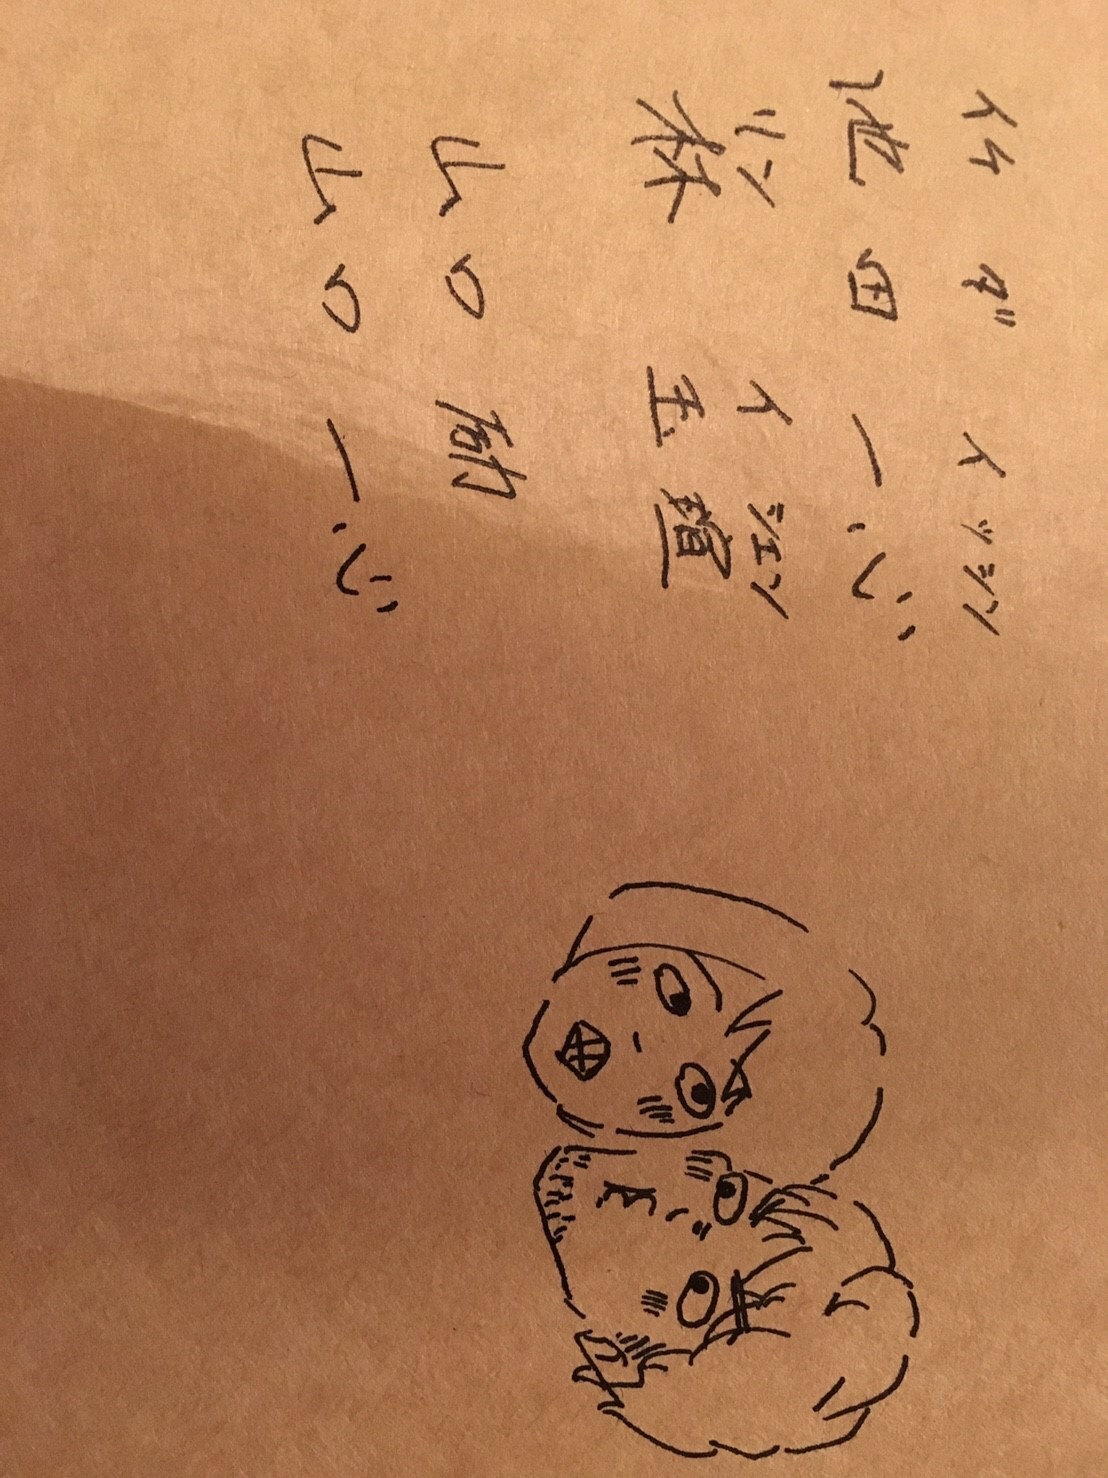 イケダ イッシン
池田 一心
リン イシェン
林 玉瑄
山口
山口 一心